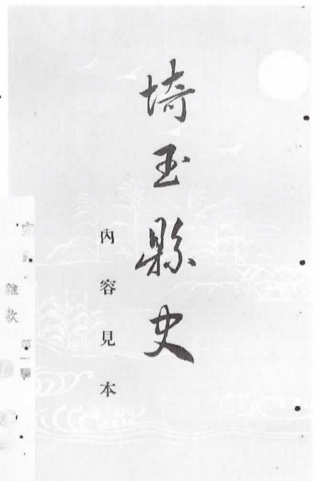 埼玉縣史
內容見本
雜款